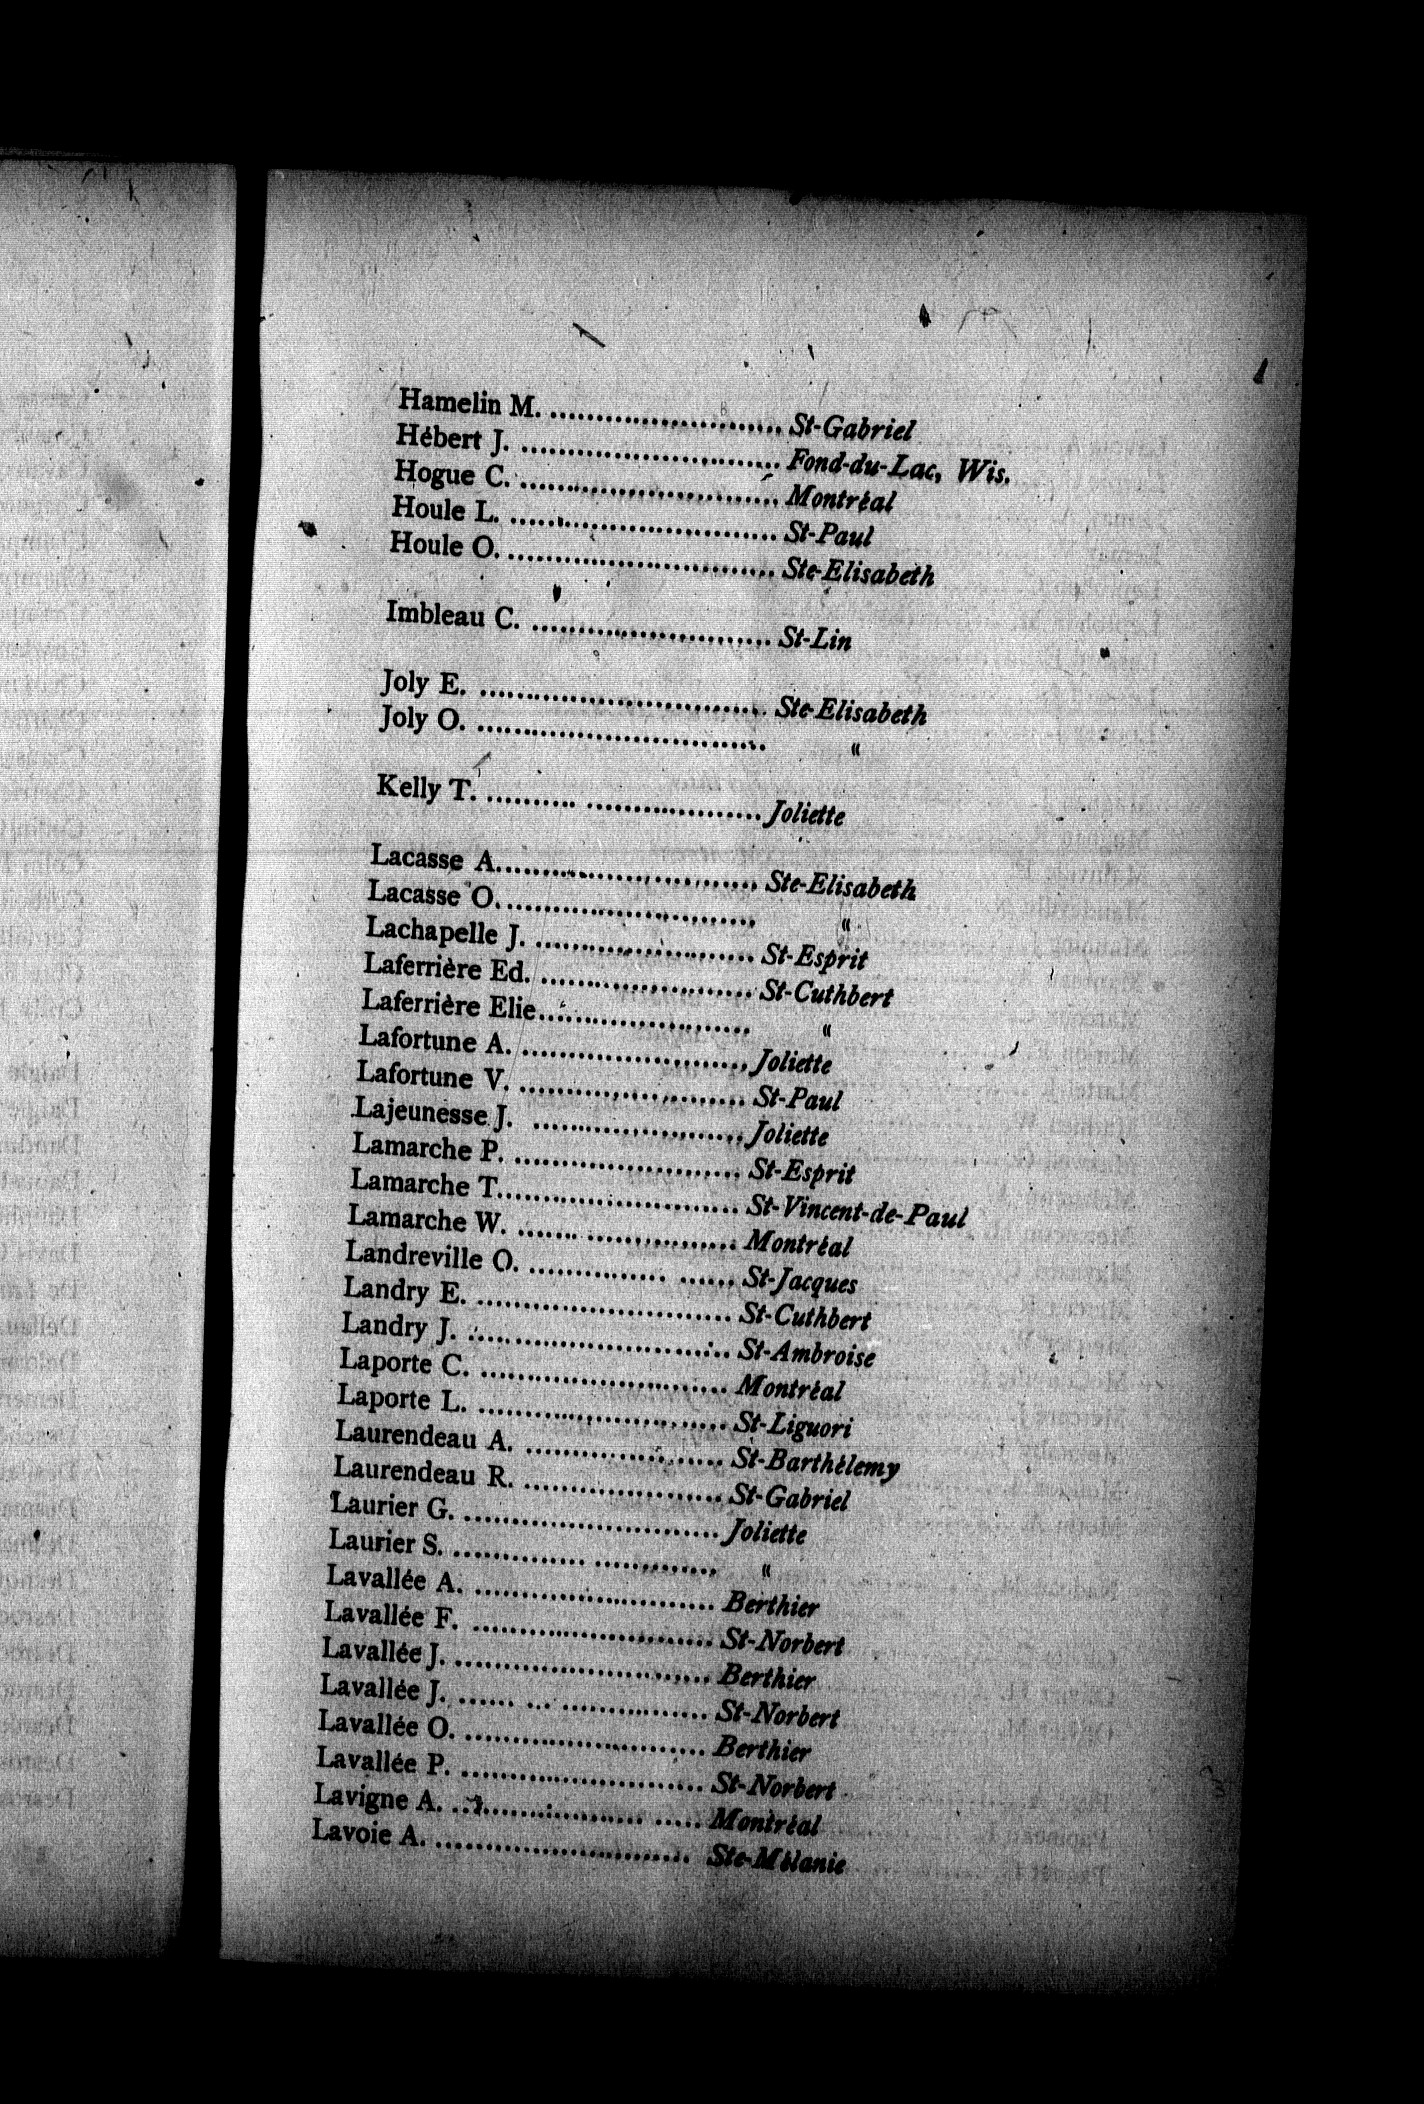 Hamelin M. .............................. St-Gabriel
Hébert J. .............................. Fond-du-Lac, Wis.
Hogue C. .............................. Montréal
Houle L. .............................. St-Paul
Houle O. .............................. Ste-Elisabeth
Imbleau C. .............................. St-Lin
Joly E. .............................. Ste-Elisabeth
Joly O. .............................. "
Kelly T. .............................. Joliette
Lacasse A. .............................. Ste-Elisabeth
Lacasse O. .............................. "
Lachapelle J. .............................. St-Esprit
Laferrière Ed. .............................. St-Cuthbert
Laferrière Elie .............................. "
Lafortune A. .............................. Joliette
Lafortune V. .............................. St-Paul
Lajeunesse J. .............................. Joliette
Lamarche P. .............................. St-Esprit
Lamarche T. .............................. St-Vincent-de-Paul
Lamarche W. .............................. Montréal
Landreville O. .............................. St-Jacques
Landry E. .............................. St-Cuthbert
Landry J. .............................. St-Ambroise
Laporte C. .............................. Montréal
Laporte L. .............................. St-Liguori
Laurendeau A. .............................. St-Barthélemy
Laurendeau R. .............................. St-Gabriel
Laurier G. .............................. Joliette
Laurier S. .............................. "
Lavallée A. .............................. Berthier
Lavallée F. .............................. St-Norbert
Lavallée J. .............................. Berthier
Lavallée J. .............................. St-Norbert
Lavallée O. .............................. Berthier
Lavallée P. .............................. St-Norbert
Lavigne A. .............................. Montréal
Lavoie A. .............................. Ste-Mélanie